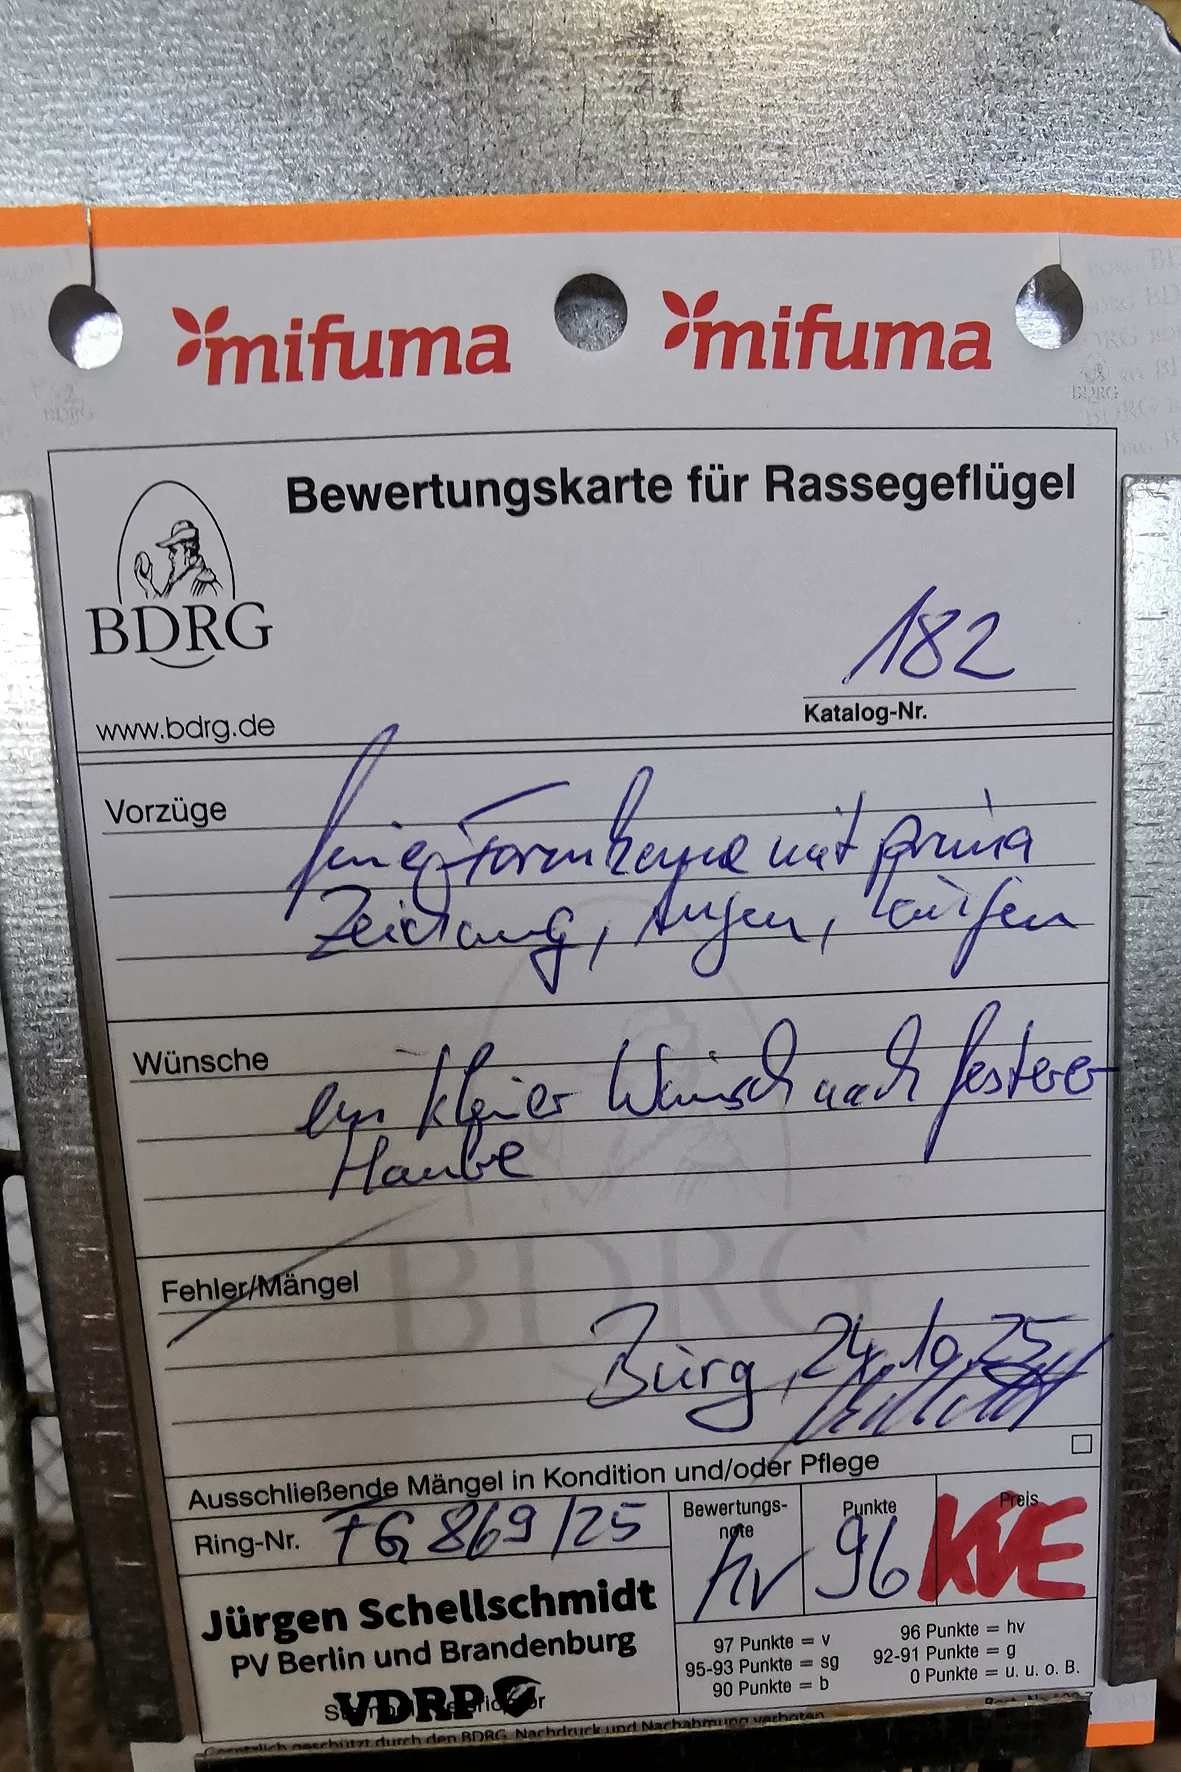 mifuma mifuma
Bewertungskarte für Rassegeflügel
BDRG
182
www.bdrg.de
Katalog-Nr.
Vorzüge
Formhenne mit prima
Zeichnung, Augen, Läufen
Wünsche
ein kleiner Wunsch nach festerer
Haube
BDRG
Fehler/Mängel
Burg, 24.10.25
Ausschließende Mängel in Kondition und/oder Pflege
Ring-Nr. FG 869/25
Bewertungs-
note
hv
Punkte
96
Preis
KVE
Jürgen Schellschmidt
PV Berlin und Brandenburg
VDRP
97 Punkte = v
95-93 Punkte = sg
90 Punkte = b
96 Punkte = hv
92-91 Punkte = g
0 Punkte = u. u. o. B.
Gesetzlich geschützt durch den BDRG, Nachdruck und Nachahmung verboten